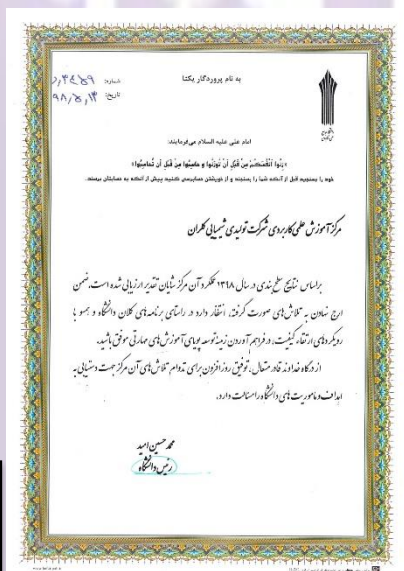 به نام پروردگار یکتا
شماره:
تاریخ: ۹۸٫۵٫۱۳
امام علی علیه السلام می‌فرمایند:
خود را بسنجید قبل از آنکه شما را بسنجند و از خویشتن حسابرسی کنید پیش از آنکه به حسابتان برسند.
مرکز آموزش علمی کاربردی شرکت تولیدی شیمیایی کلران
براساس نتایج سطح بندی در سال ۱۳۹۸ عملکرد آن مرکز شایان تقدیر ارزیابی شده است. ضمن
ارج نهادن به تلاش‌های صورت گرفته، انتظار دارد در راستای برنامه‌های کلان دانشگاه و همسو با
رویکردهای ارتقاء کیفیت، در فراهم آوردن زمینه توسعه پویای آموزش‌های مهارتی موفق باشید.
از درگاه خداوند قادر متعال، توفیق روزافزون برای تداوم تلاش‌های آن مرکز جهت دستیابی به
اهداف و ماموریت‌های دانشگاه را مسالت دارد.
محمد حسین امید
رئیس دانشگاه